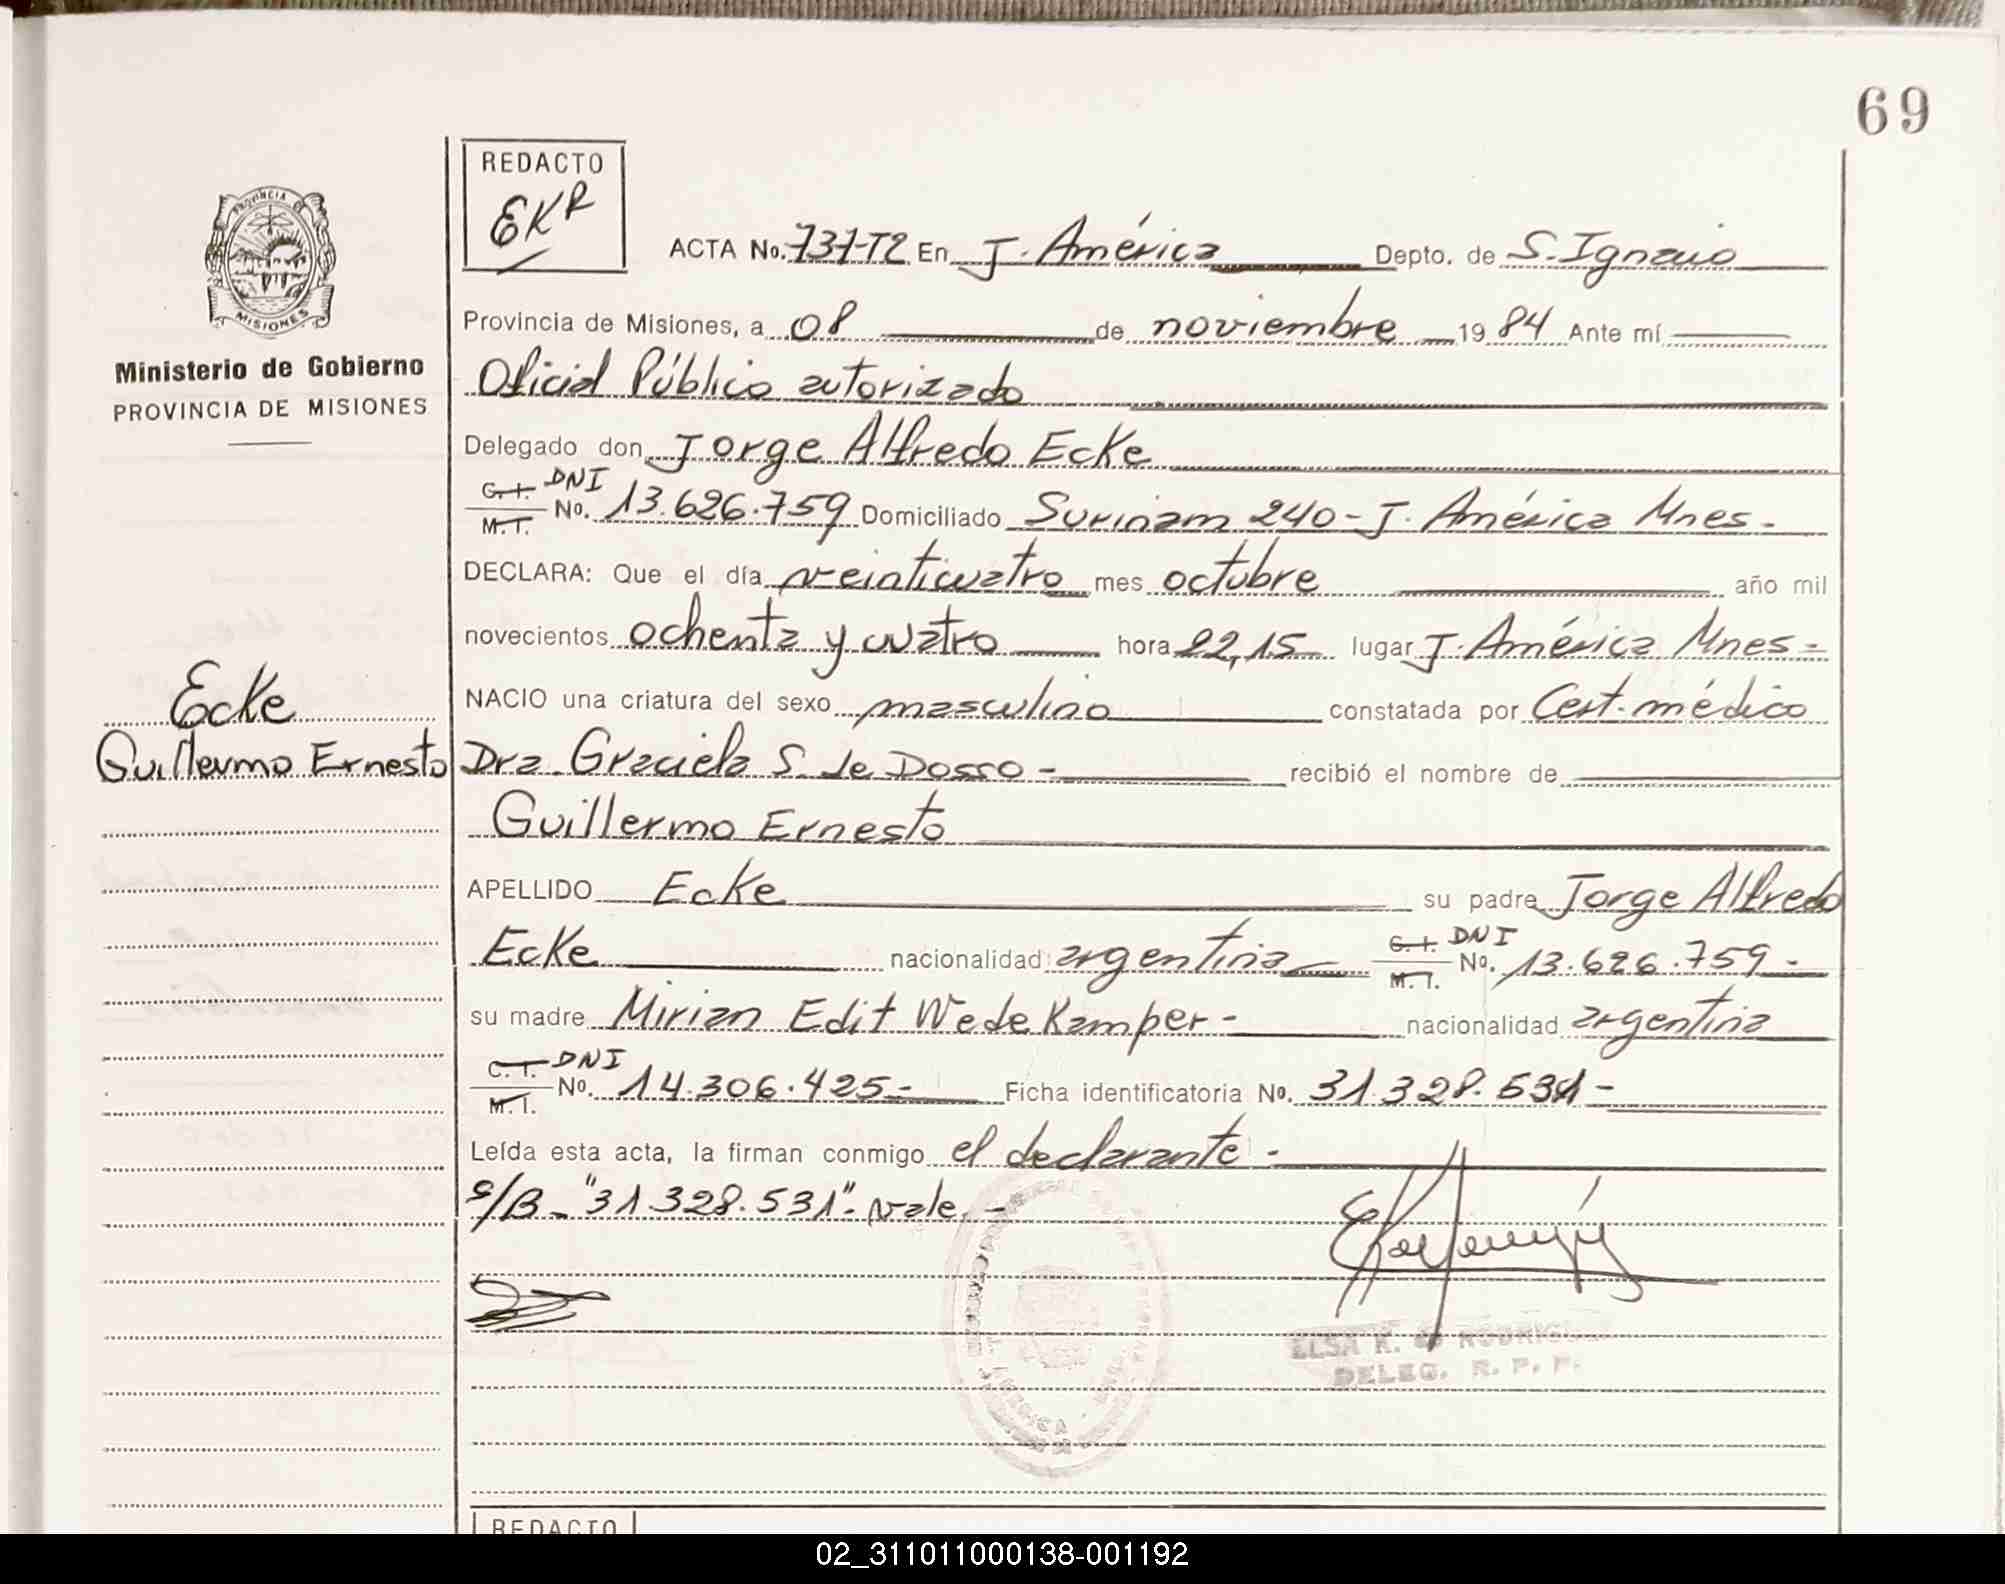 69
REDACTO
EKR
ACTA No. 737-T2 En J. América Depto. de S. Ignacio
PROVINCIA DE MISIONES
Provincia de Misiones, a 08 de noviembre 1984 Ante mí
Ministerio de Gobierno
PROVINCIA DE MISIONES
Oficial Público autorizado
Delegado don Jorge Alfredo Ecke
C.I. M.I. DNI No. 13.626.759 Domiciliado Surinam 240 - J. América Mnes -
DECLARA: Que el día veinticuatro mes octubre año mil
novecientos ochenta y cuatro hora 22,15 lugar J. América Mnes -
Ecke
NACIO una criatura del sexo masculino constatada por Cert. médico
Guillermo Ernesto
Dra. Graciela S. de Dosso - recibió el nombre de
Guillermo Ernesto
APELLIDO Ecke su padre Jorge Alfredo
Ecke nacionalidad argentina C.I. M.I. DNI No. 13.626.759 -
su madre Mirian Edit Wedekamper - nacionalidad argentina
C.I. M.I. DNI No. 14.306.425 - Ficha identificatoria No. 31.328.531 -
Leída esta acta, la firman conmigo el declarante -
s/B - "31.328.531" - vale -
ELSA K. de RODRIGUEZ
DELEG. R. P. P.
REDACTO
02_311011000138-001192